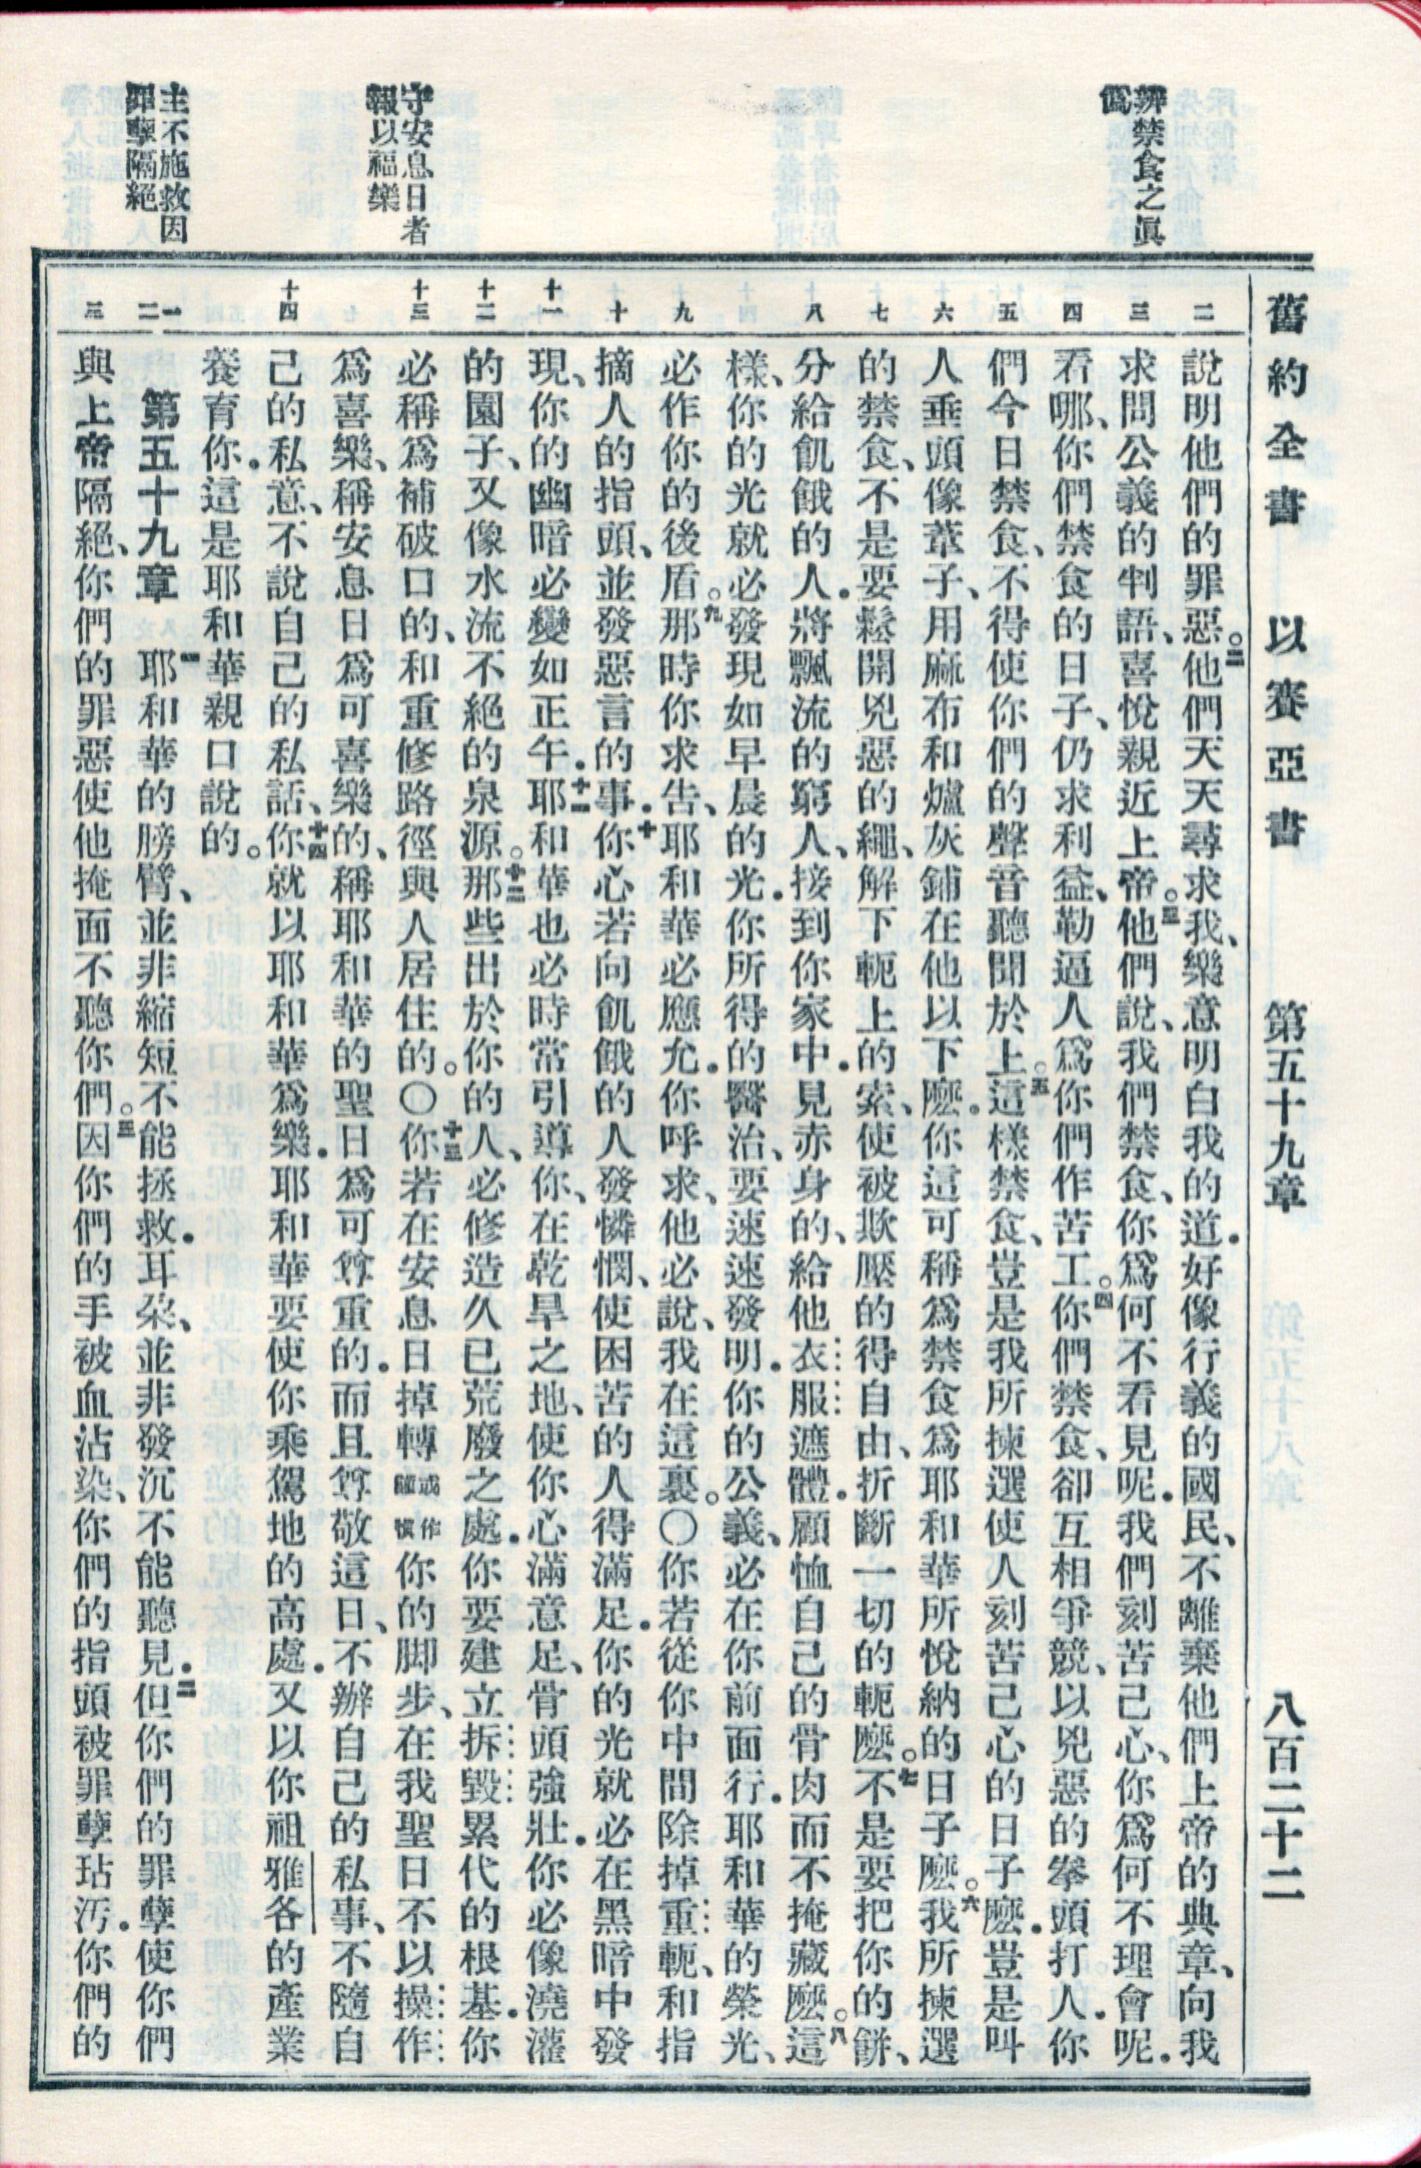 舊約全書　以賽亞書　第五十九章　八百二十二
辨禁食之眞
僞
守安息日者
報以福樂
主不施救因
罪孽隔絕
二
三
四
五
六
七
八
九
十
十一
十二
十三
十四
一
二
三
說明他們的罪惡。二他們天天尋求我、樂意明白我的道．好像行義的國民、不離棄他們上帝的典章、向我
求問公義的判語、喜悅親近上帝。三他們說、我們禁食、你爲何不看見呢．我們刻苦己心、你爲何不理會呢．
看哪、你們禁食的日子、仍求利益、勒逼人爲你們作苦工。四你們禁食、卻互相爭競、以兇惡的拳頭打人．你
們今日禁食、不得使你們的聲音聽聞於上。五這樣禁食、豈是我所揀選使人刻苦己心的日子麽．豈是叫
人垂頭像葦子、用麻布和爐灰鋪在他以下麽．你這可稱爲禁食爲耶和華所悅納的日子麽。六我所揀選
的禁食、不是要鬆開兇惡的繩、解下軛上的索、使被欺壓的得自由、折斷一切的軛麽。七不是要把你的餅、
分給飢餓的人．將飄流的窮人、接到你家中．見赤身的、給他衣服遮體．顧恤自己的骨肉而不掩藏麽。八這
樣、你的光就必發現如早晨的光．你所得的醫治、要速速發明．你的公義、必在你前面行．耶和華的榮光、
必作你的後盾。九那時你求告、耶和華必應允．你呼求、他必說、我在這裏。〇你若從你中間除掉重軛、和指
摘人的指頭、並發惡言的事．十你心若向飢餓的人發憐憫、使困苦的人得滿足．你的光就必在黑暗中發
現、你的幽暗必變如正午．十一耶和華也必時常引導你、在乾旱之地、使你心滿意足、骨頭強壯．你必像澆灌
的園子、又像水流不絕的泉源。十二那些出於你的人、必修造久已荒廢之處．你要建立拆毀累代的根基．你
必稱爲補破口的、和重修路徑與人居住的。〇十三你若在安息日掉轉或作謹愼你的脚步、在我聖日不以操作
爲喜樂、稱安息日爲可喜樂的、稱耶和華的聖日爲可尊重的．而且尊敬這日、不辦自己的私事、不隨自
己的私意、不說自己的私話、十四你就以耶和華爲樂．耶和華要使你乘駕地的高處．又以你祖雅各的產業
養育你．這是耶和華親口說的。
第五十九章　一耶和華的膀臂、並非縮短不能拯救．耳朶、並非發沉不能聽見．二但你們的罪孽使你們
與上帝隔絕、你們的罪惡使他掩面不聽你們。三因你們的手被血沾染、你們的指頭被罪孽玷汚．你們的